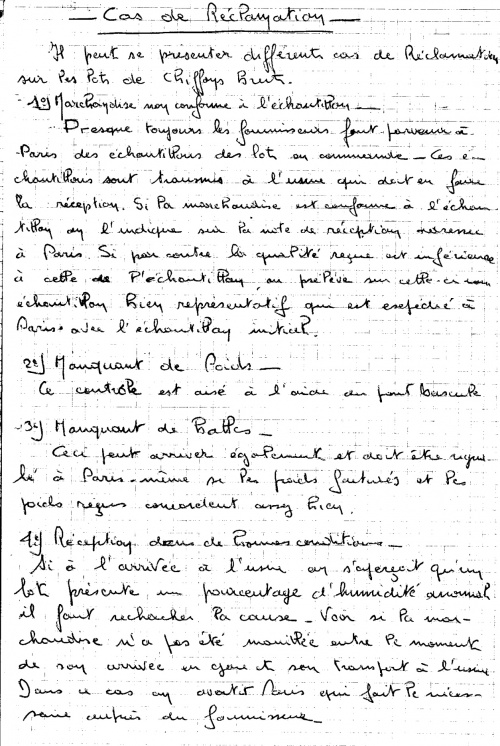 — Cas de Réclamation —
Il peut se présenter différents cas de Réclamation
sur les lots de Chiffons Bruts.
1º) Marchandise non conforme à l'échantillon —
Presque toujours les fournisseurs font parvenir à
Paris des échantillons des lots en commande — Ces é-
chantillons sont transmis à l'usine qui doit en faire
la réception. Si la marchandise est conforme à l'échan
tillon on l'indique sur la note de réception adressée
à Paris. Si par contre la qualité reçue est inférieure
à celle de l'échantillon, on prélève sur celle-ci un
échantillon bien représentatif qui est expédié à
Paris avec l'échantillon initial.
2º) Manquant de Poids —
Ce contrôle est aisé à l'aide du pont bascule
3º) Manquant de Balles —
Ceci peut arriver également et doit être signa
lé à Paris même si les poids facturés et les
poids reçus concordent assez bien.
4º) Réception dans de bonnes conditions —
Si à l'arrivée à l'usine on s'aperçoit qu'un
lot présente un pourcentage d'humidité anormal
il faut rechercher la cause — Voir si la mar-
chandise n'a pas été mouillée entre le moment
de son arrivée en gare et son transport à l'usine
Dans ce cas on avertit Paris qui fait le néces-
saire auprès du fournisseur —